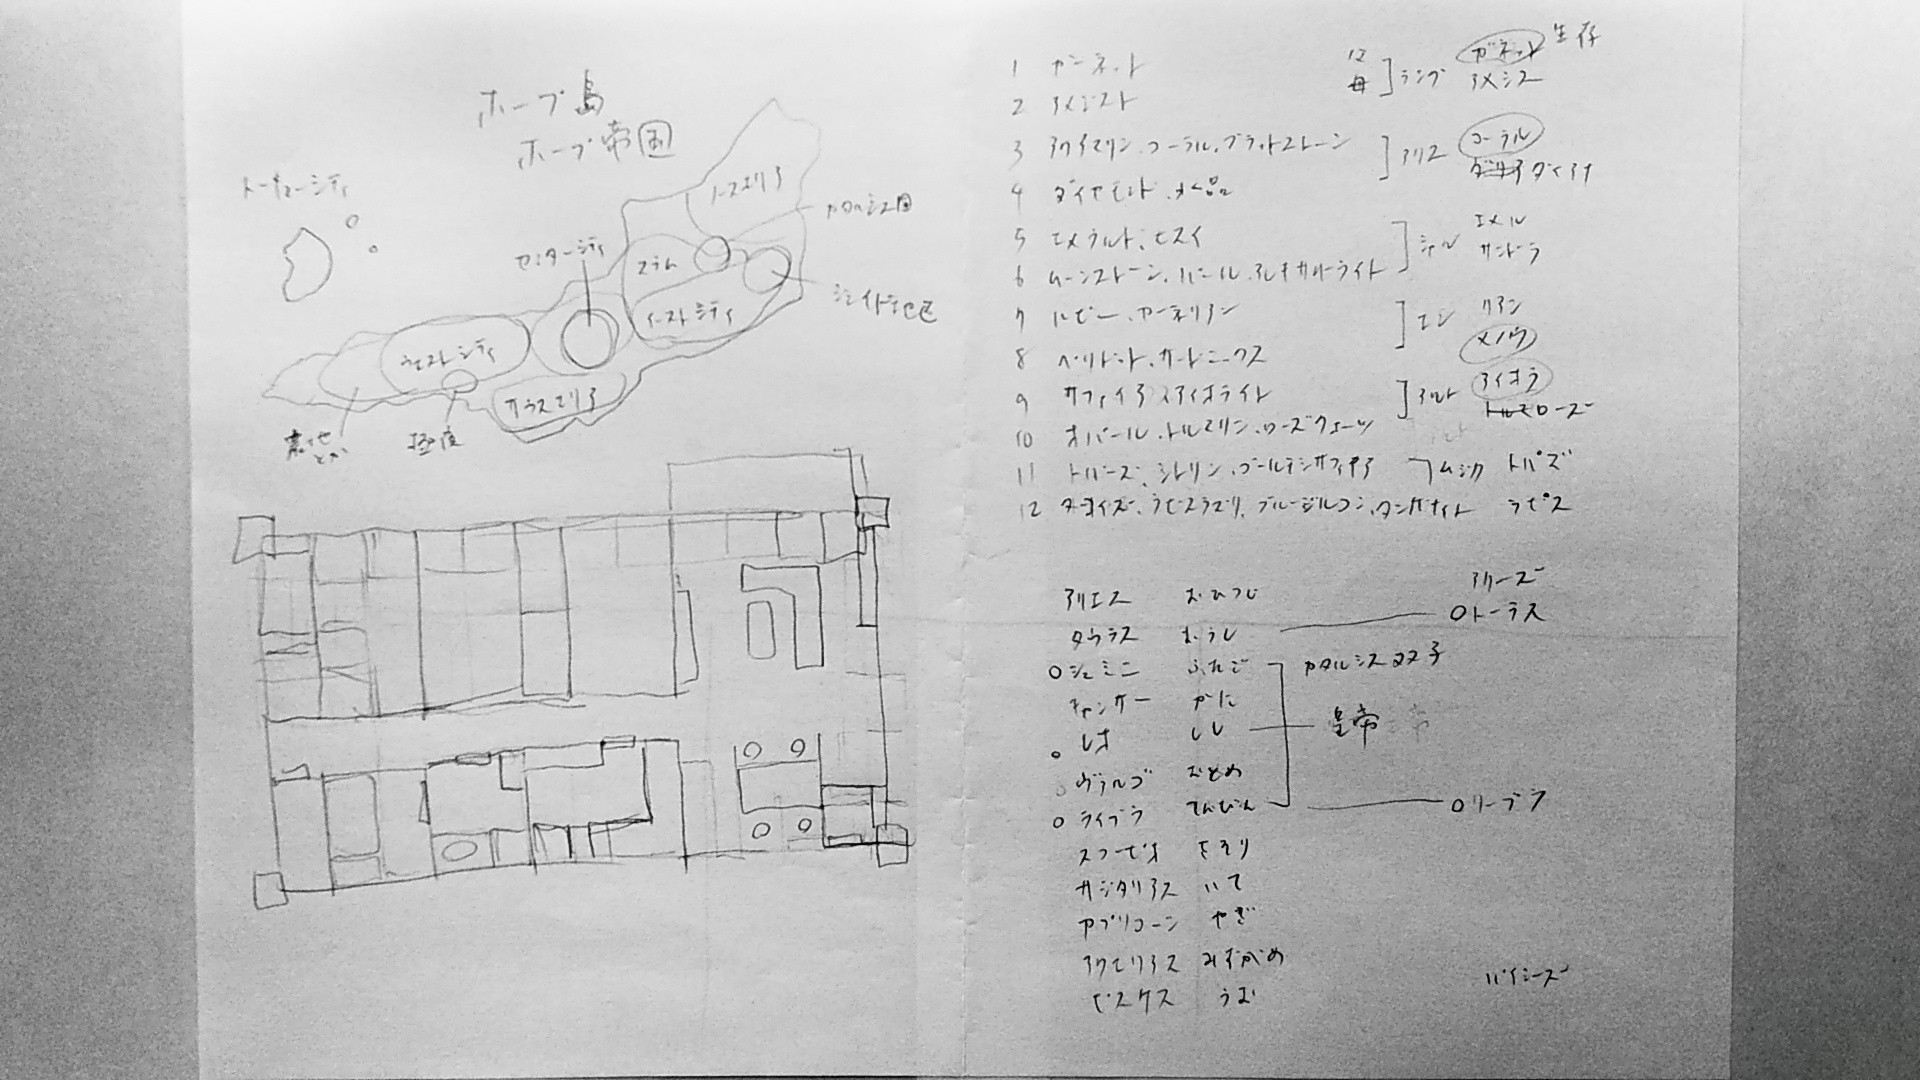 ホープ島
ホープ帝国
トーキョーシティ
ノースエリア
カタルシス国
センターシティ
スラム
イーストシティ
ジェイド地区
ウェストシティ
サウスエリア
とか
1 ガーネット
2 アメジスト
3 アクアマリン、コーラル、ブラッドストーン
4 ダイヤモンド、水晶
5 エメラルド、ヒスイ
6 ムーンストーン、パール、アレキサンドライト
7 ルビー、カーネリアン
8 ペリドット、サードニックス
9 サファイア、アイオライト
10 オパール、トルマリン、ローズクォーツ
11 トパーズ、シトリン、ゴールデンサファイア
12 ターコイズ、ラピスラズリ、ブルージルコン、タンザナイト
父
母
ランプ
ガネット 生存
アメシス
アリス
コーラル
ダイアナ
シェル
エメル
サンドラ
エン
リアン
メノウ
アルト
アイオラ
ローズ
ムジカ トパズ
ラピス
アリエス おひつじ
タウラス おうし
○ジェミニ ふたご
キャンサー かに
○レオ しし
ヴァルゴ おとめ
○ライブラ てんびん
スコーピオ さそり
サジタリアス いて
カプリコーン やぎ
アクエリアス みずがめ
ピスケス うお
アリーズ
○トーラス
カタルシス双子
皇帝
○リーブラ
パイシーズ